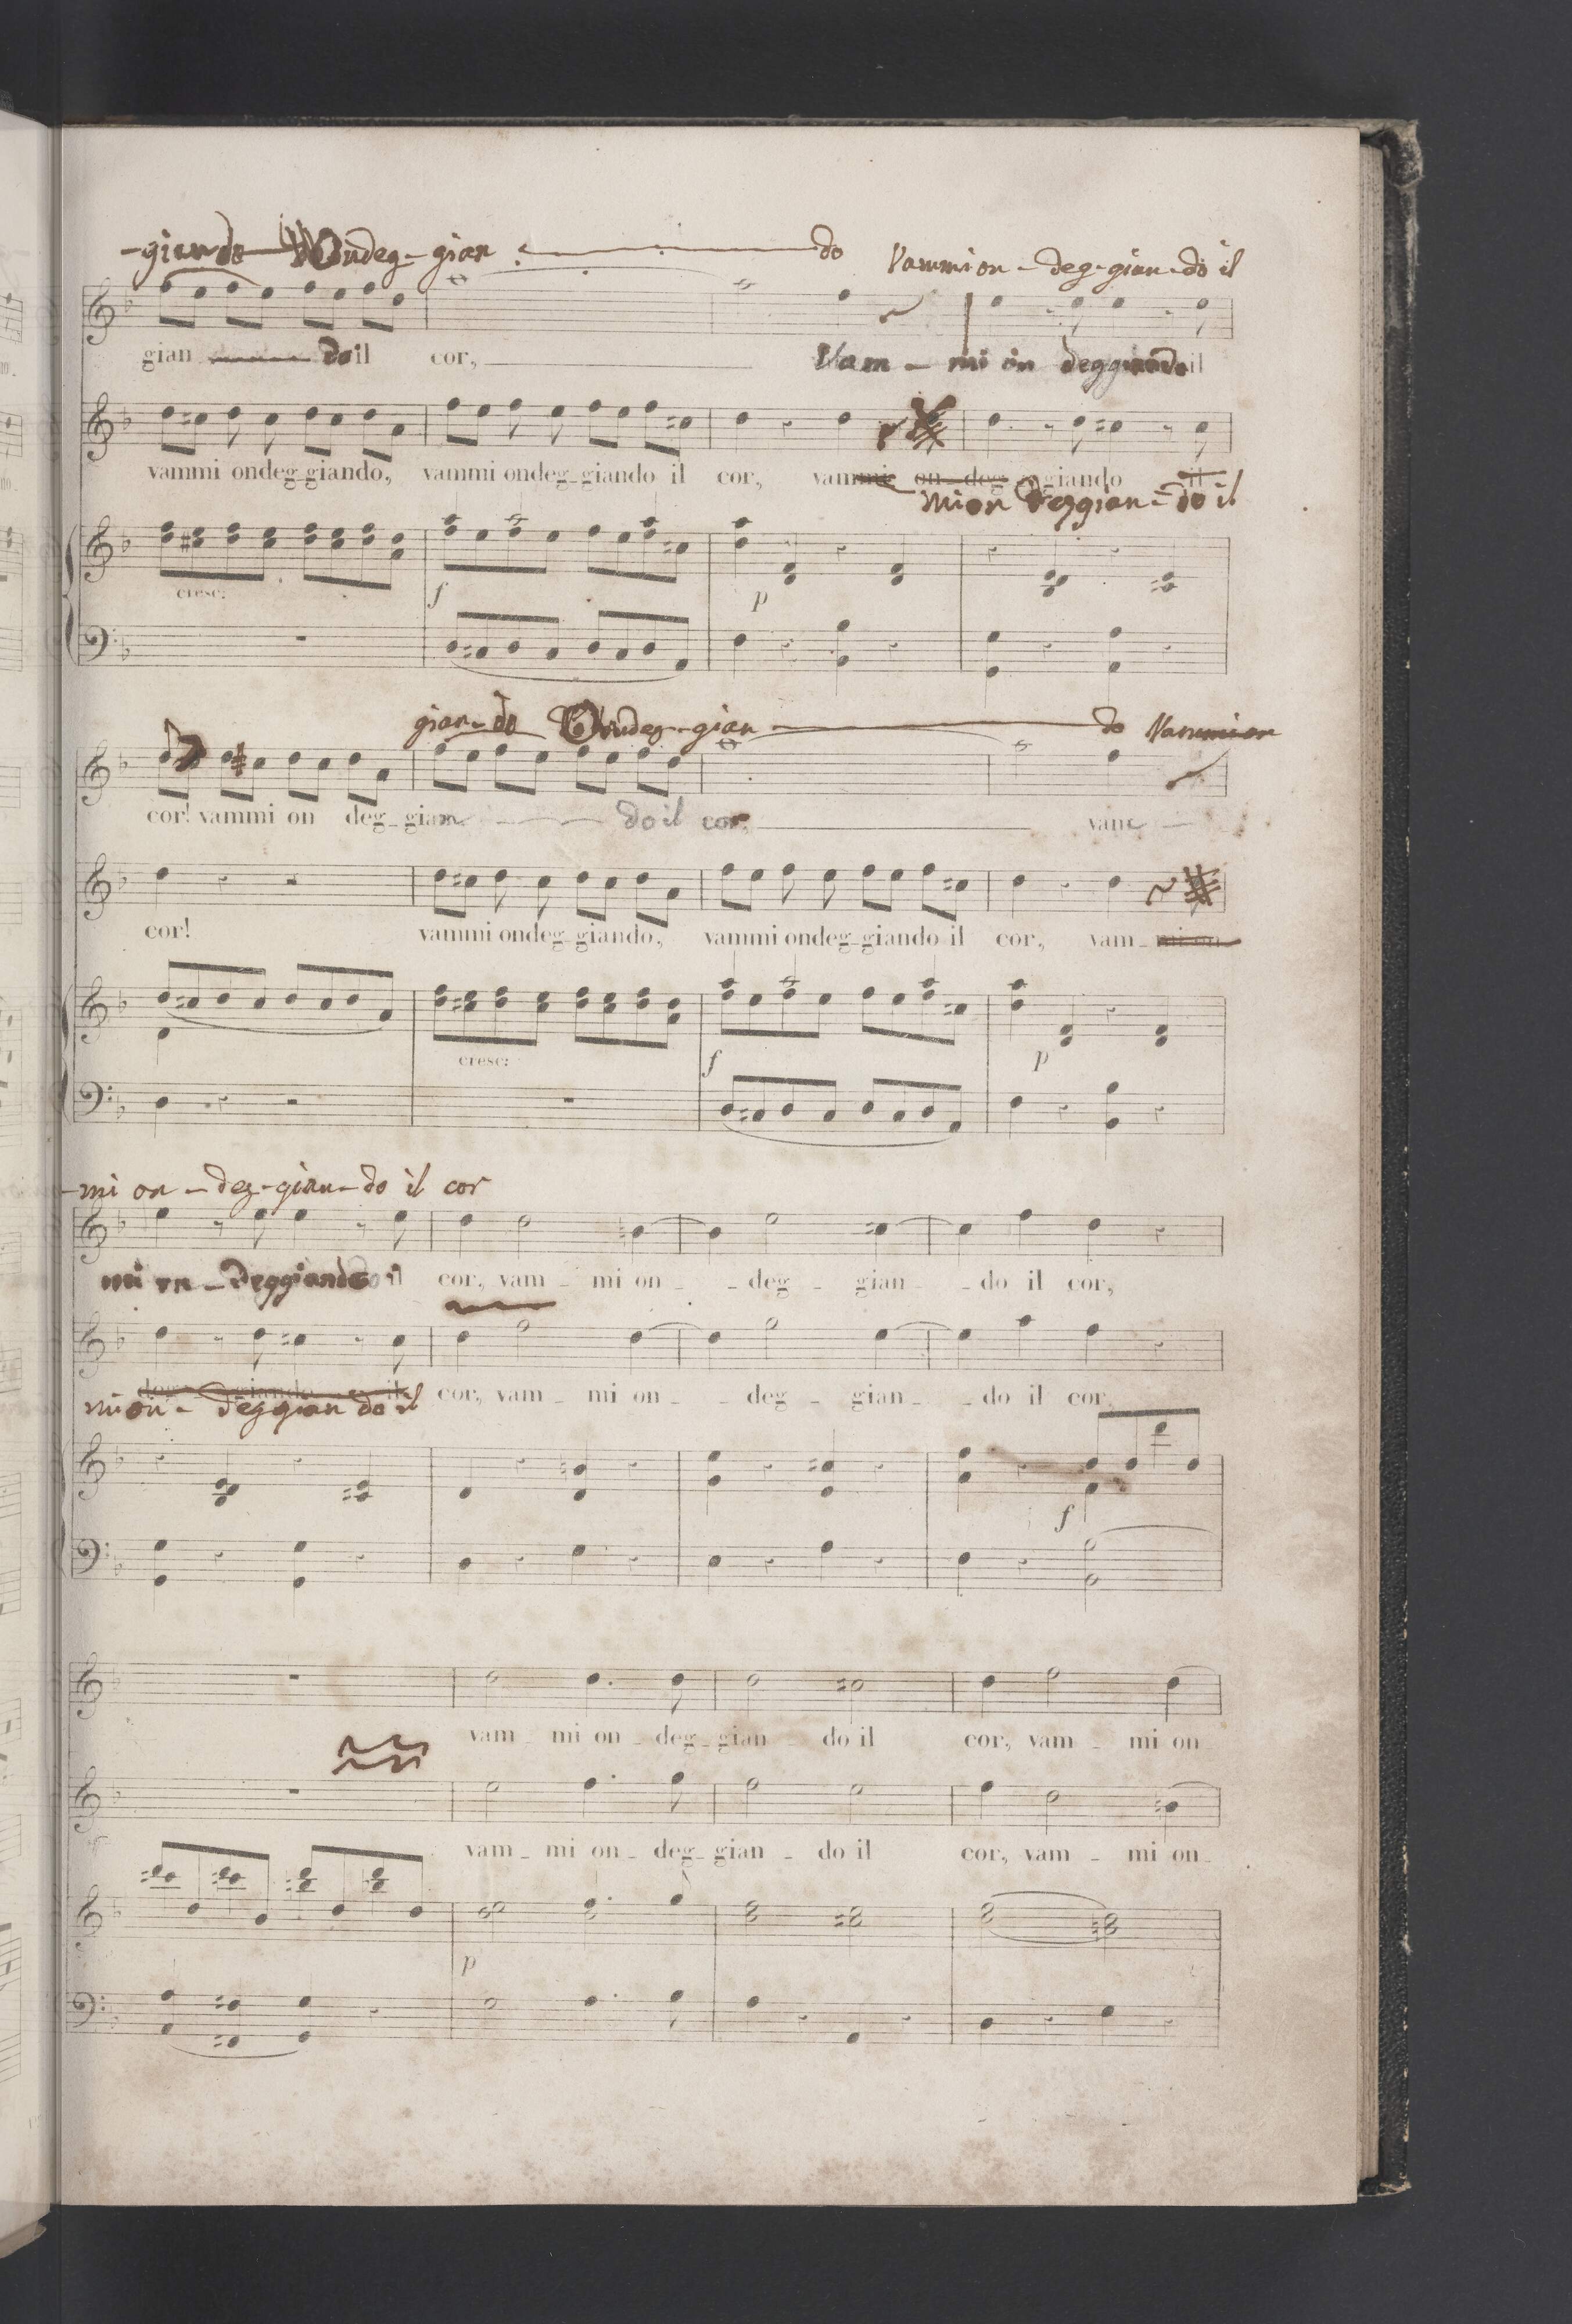 -giando Ondeg-gian do Vammi on-deg-gian-do il
gian do il cor, Vam - mi on deggiando il
vammi ondeg-giando, vammi ondeg-giando il cor, vammi on-deg-giando il
mi on deggian-do il
cresc: f p
gian-do Ondeg-gian do Vammi on
cor! vammi on deg-gian do il cor, vam
cor! vammi ondeg-giando, vammi ondeg-giando il cor, vam-mi on
cresc: f p
-mi on-deg-gian-do il cor
mi on-deggiando il cor, vam - mi on - deg - gian - do il cor,
deg-giando il cor, vam - mi on - deg - gian - do il cor,
mi on - deggian do il
f
vam - mi on - deg-gian - do il cor, vam - mi on-
vam - mi on - deg-gian - do il cor, vam - mi on-
p